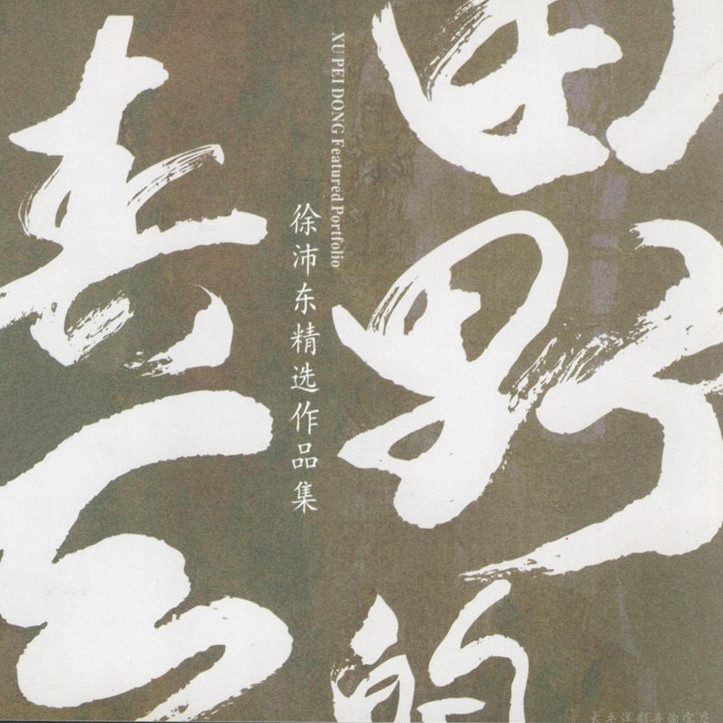 田野的
喜云
XU PEI DONG Featured Portfolio
徐沛东精选作品集